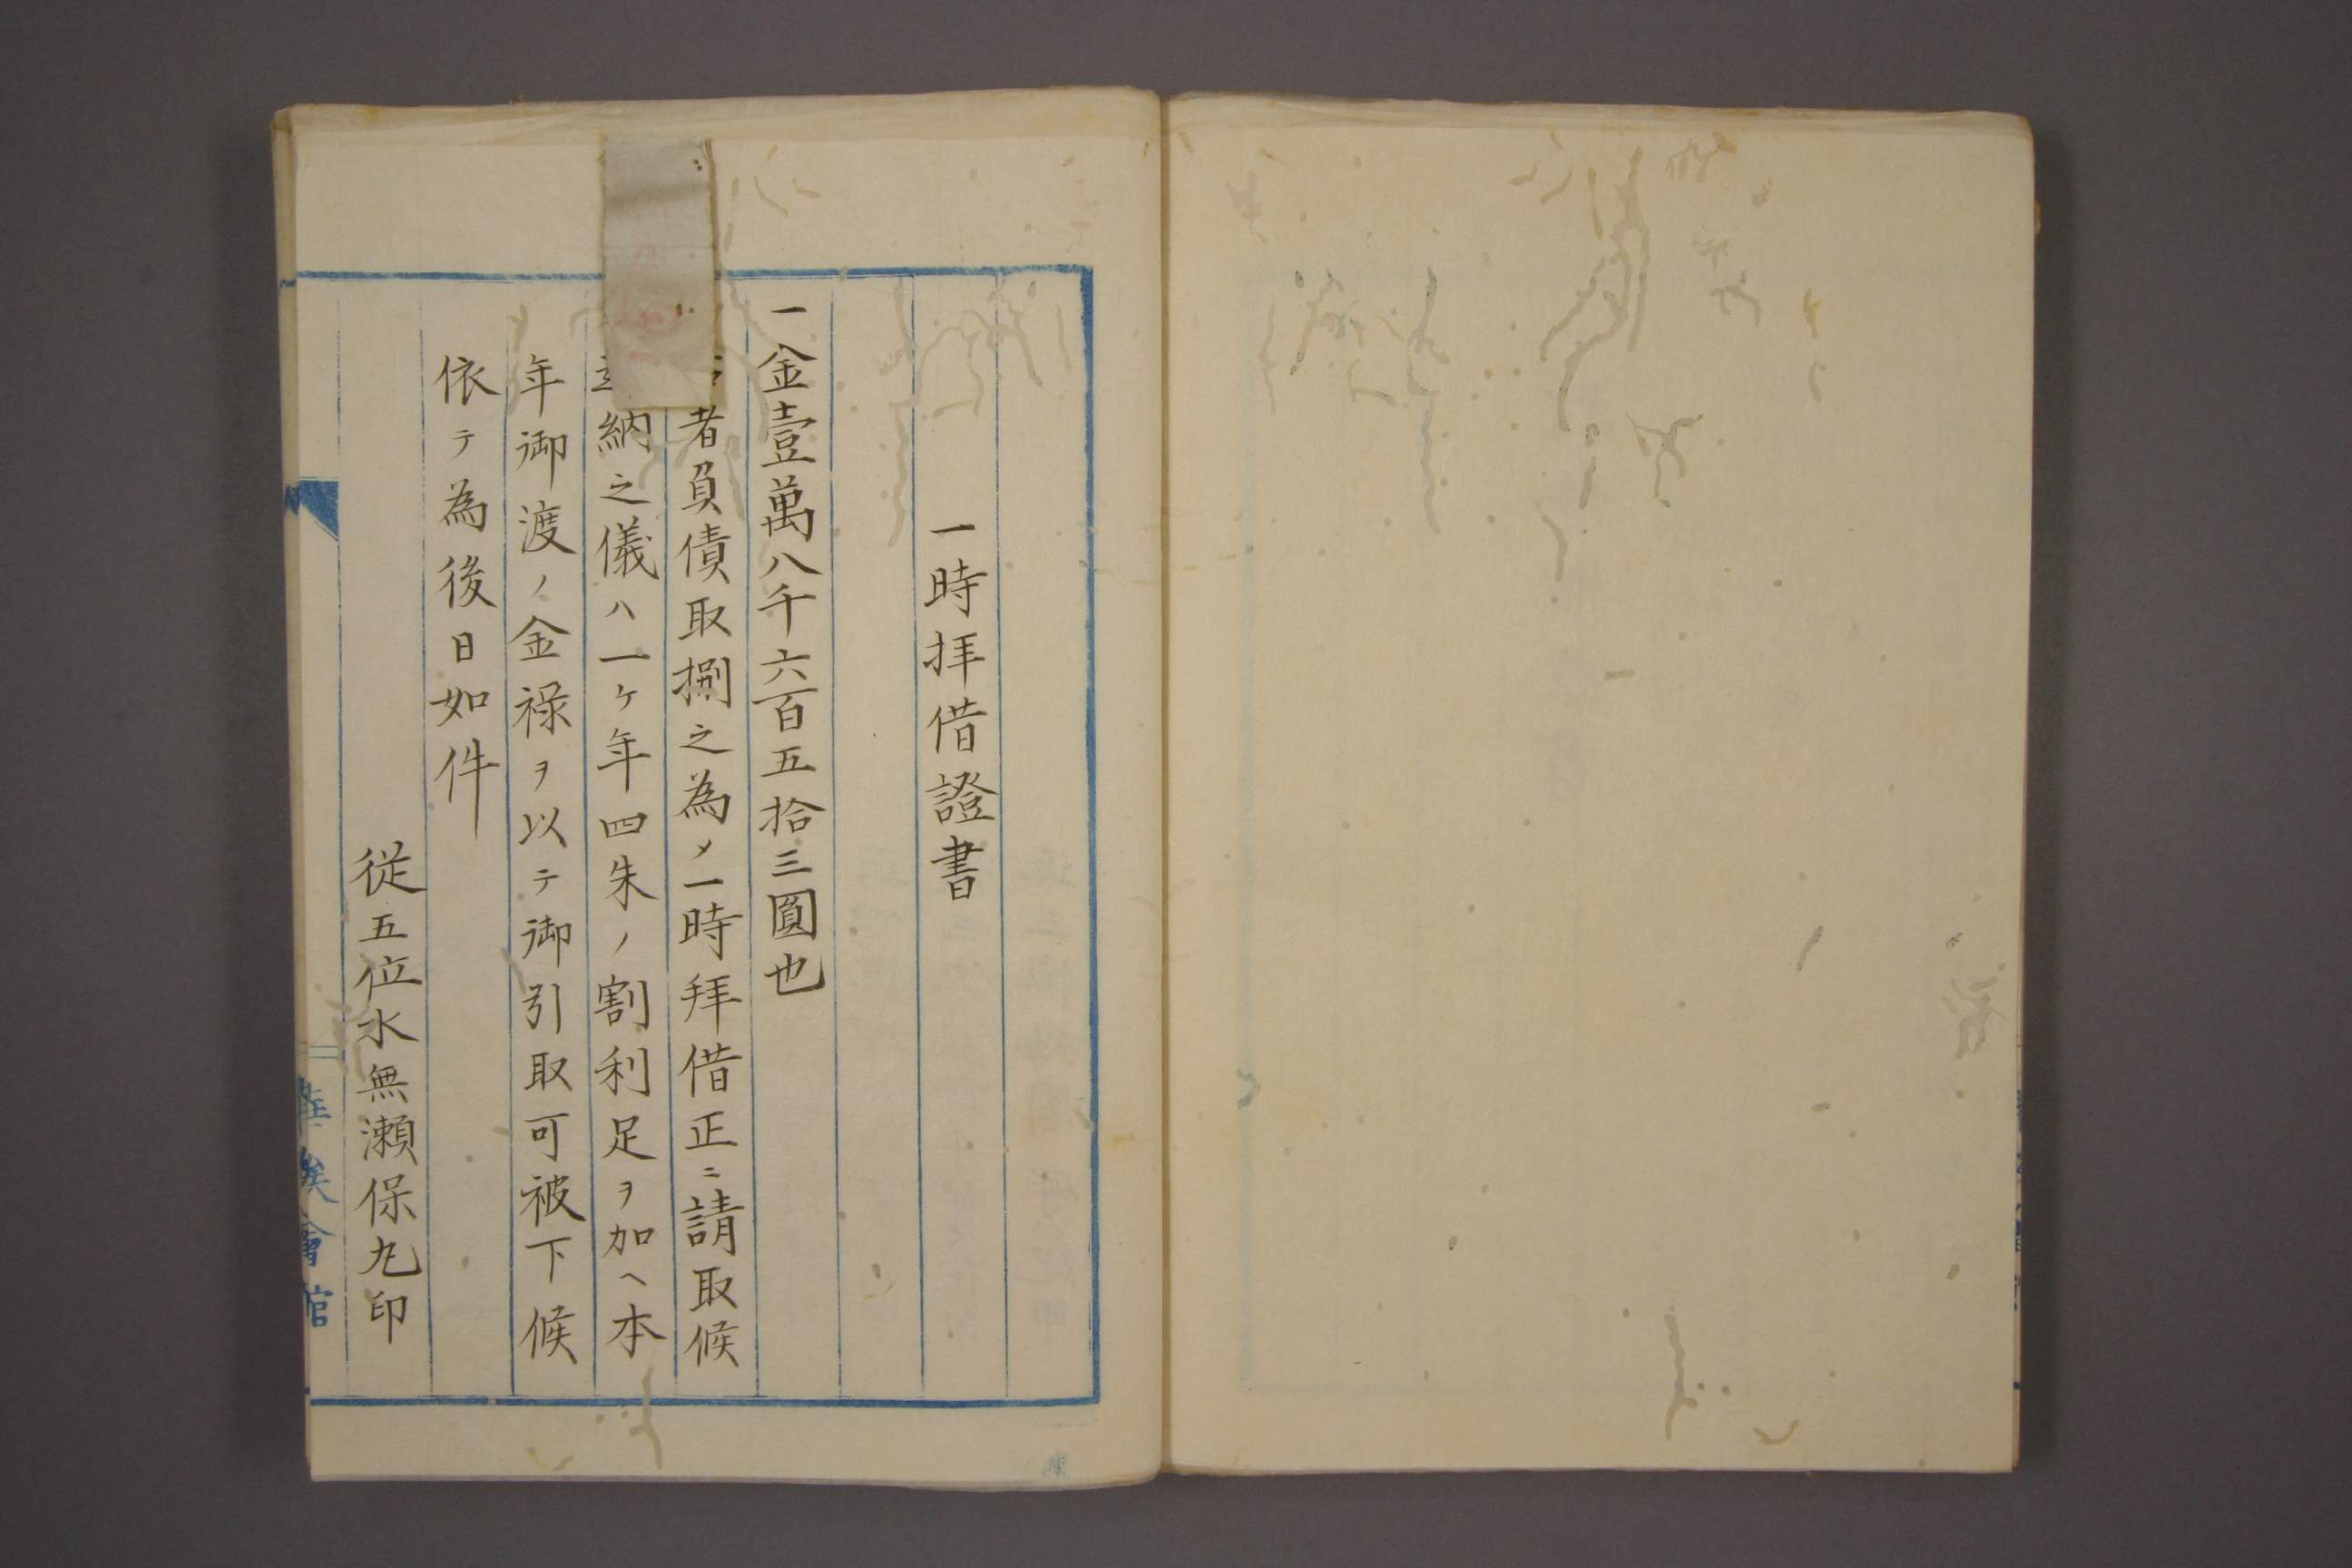 一時拝借證書
一金壹萬八千六百五拾三圓也
者負債取捌之為メ一時拜借正ニ請取候
納之儀ハ一ケ年四朱ノ割利足ヲ加ヘ本
年御渡ノ金禄ヲ以テ御引取可被下候
依テ為後日如件
従五位水無瀬保丸印
華族會館